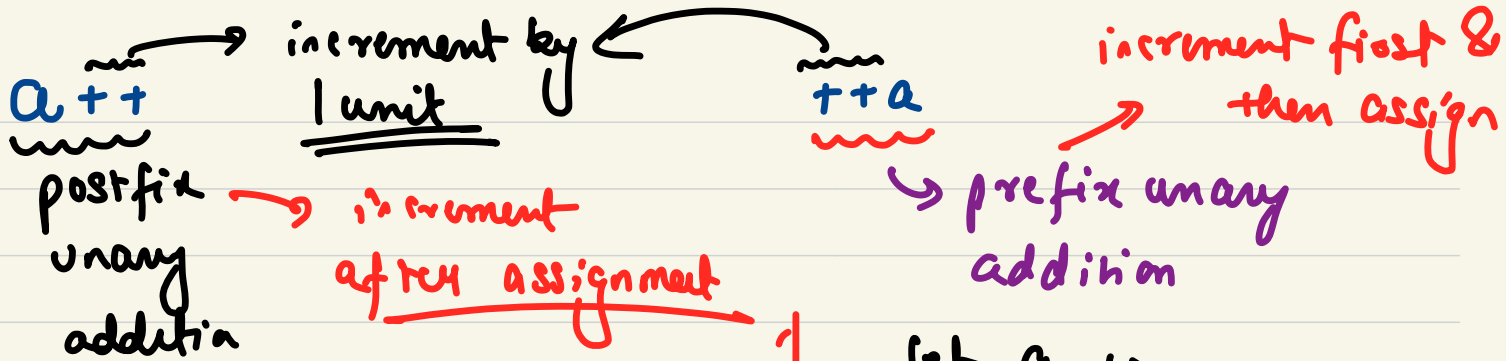 a++
increment by
1 unit
++a
increment first &
then assign
postfix
unary
addition
increment
after assignment
prefix unary
addition